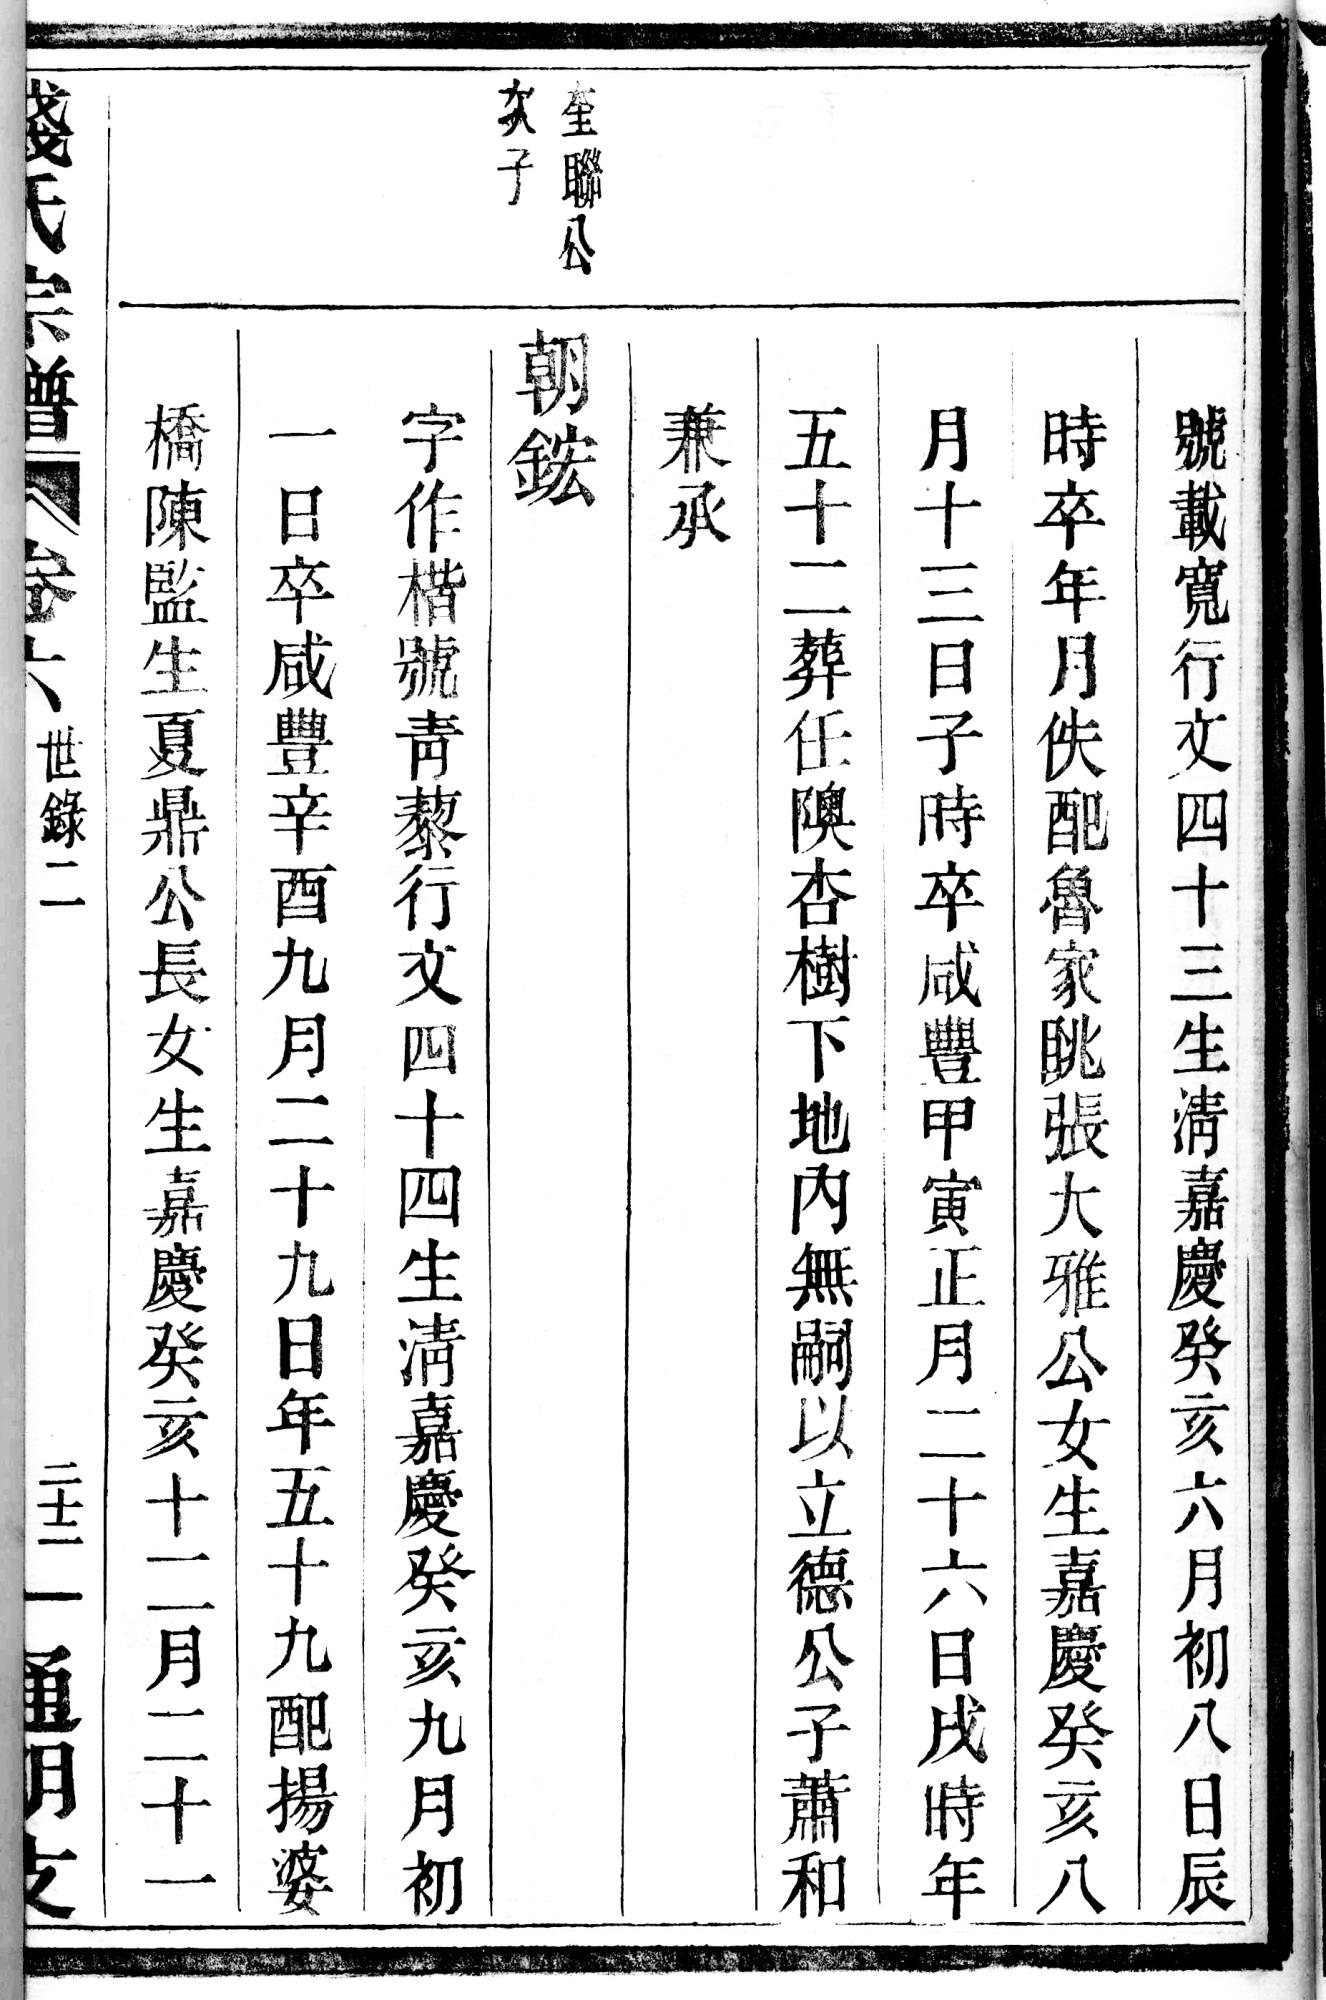 號載寬行文四十三生淸嘉慶癸亥六月初八日辰
時卒年月佚配魯家眺張大雅公女生嘉慶癸亥八
月十三日子時卒咸豐甲寅正月二十六日戌時年
五十二葬任隩杏樹下地內無嗣以立德公子蕭和
兼承
奎聯公
次子
朝鋐
字作楷號靑藜行文四十四生淸嘉慶癸亥九月初
一日卒咸豐辛酉九月二十九日年五十九配揚婆
橋陳監生夏鼎公長女生嘉慶癸亥十二月二十一
錢氏宗譜
卷六
世錄二
二十二
通明支